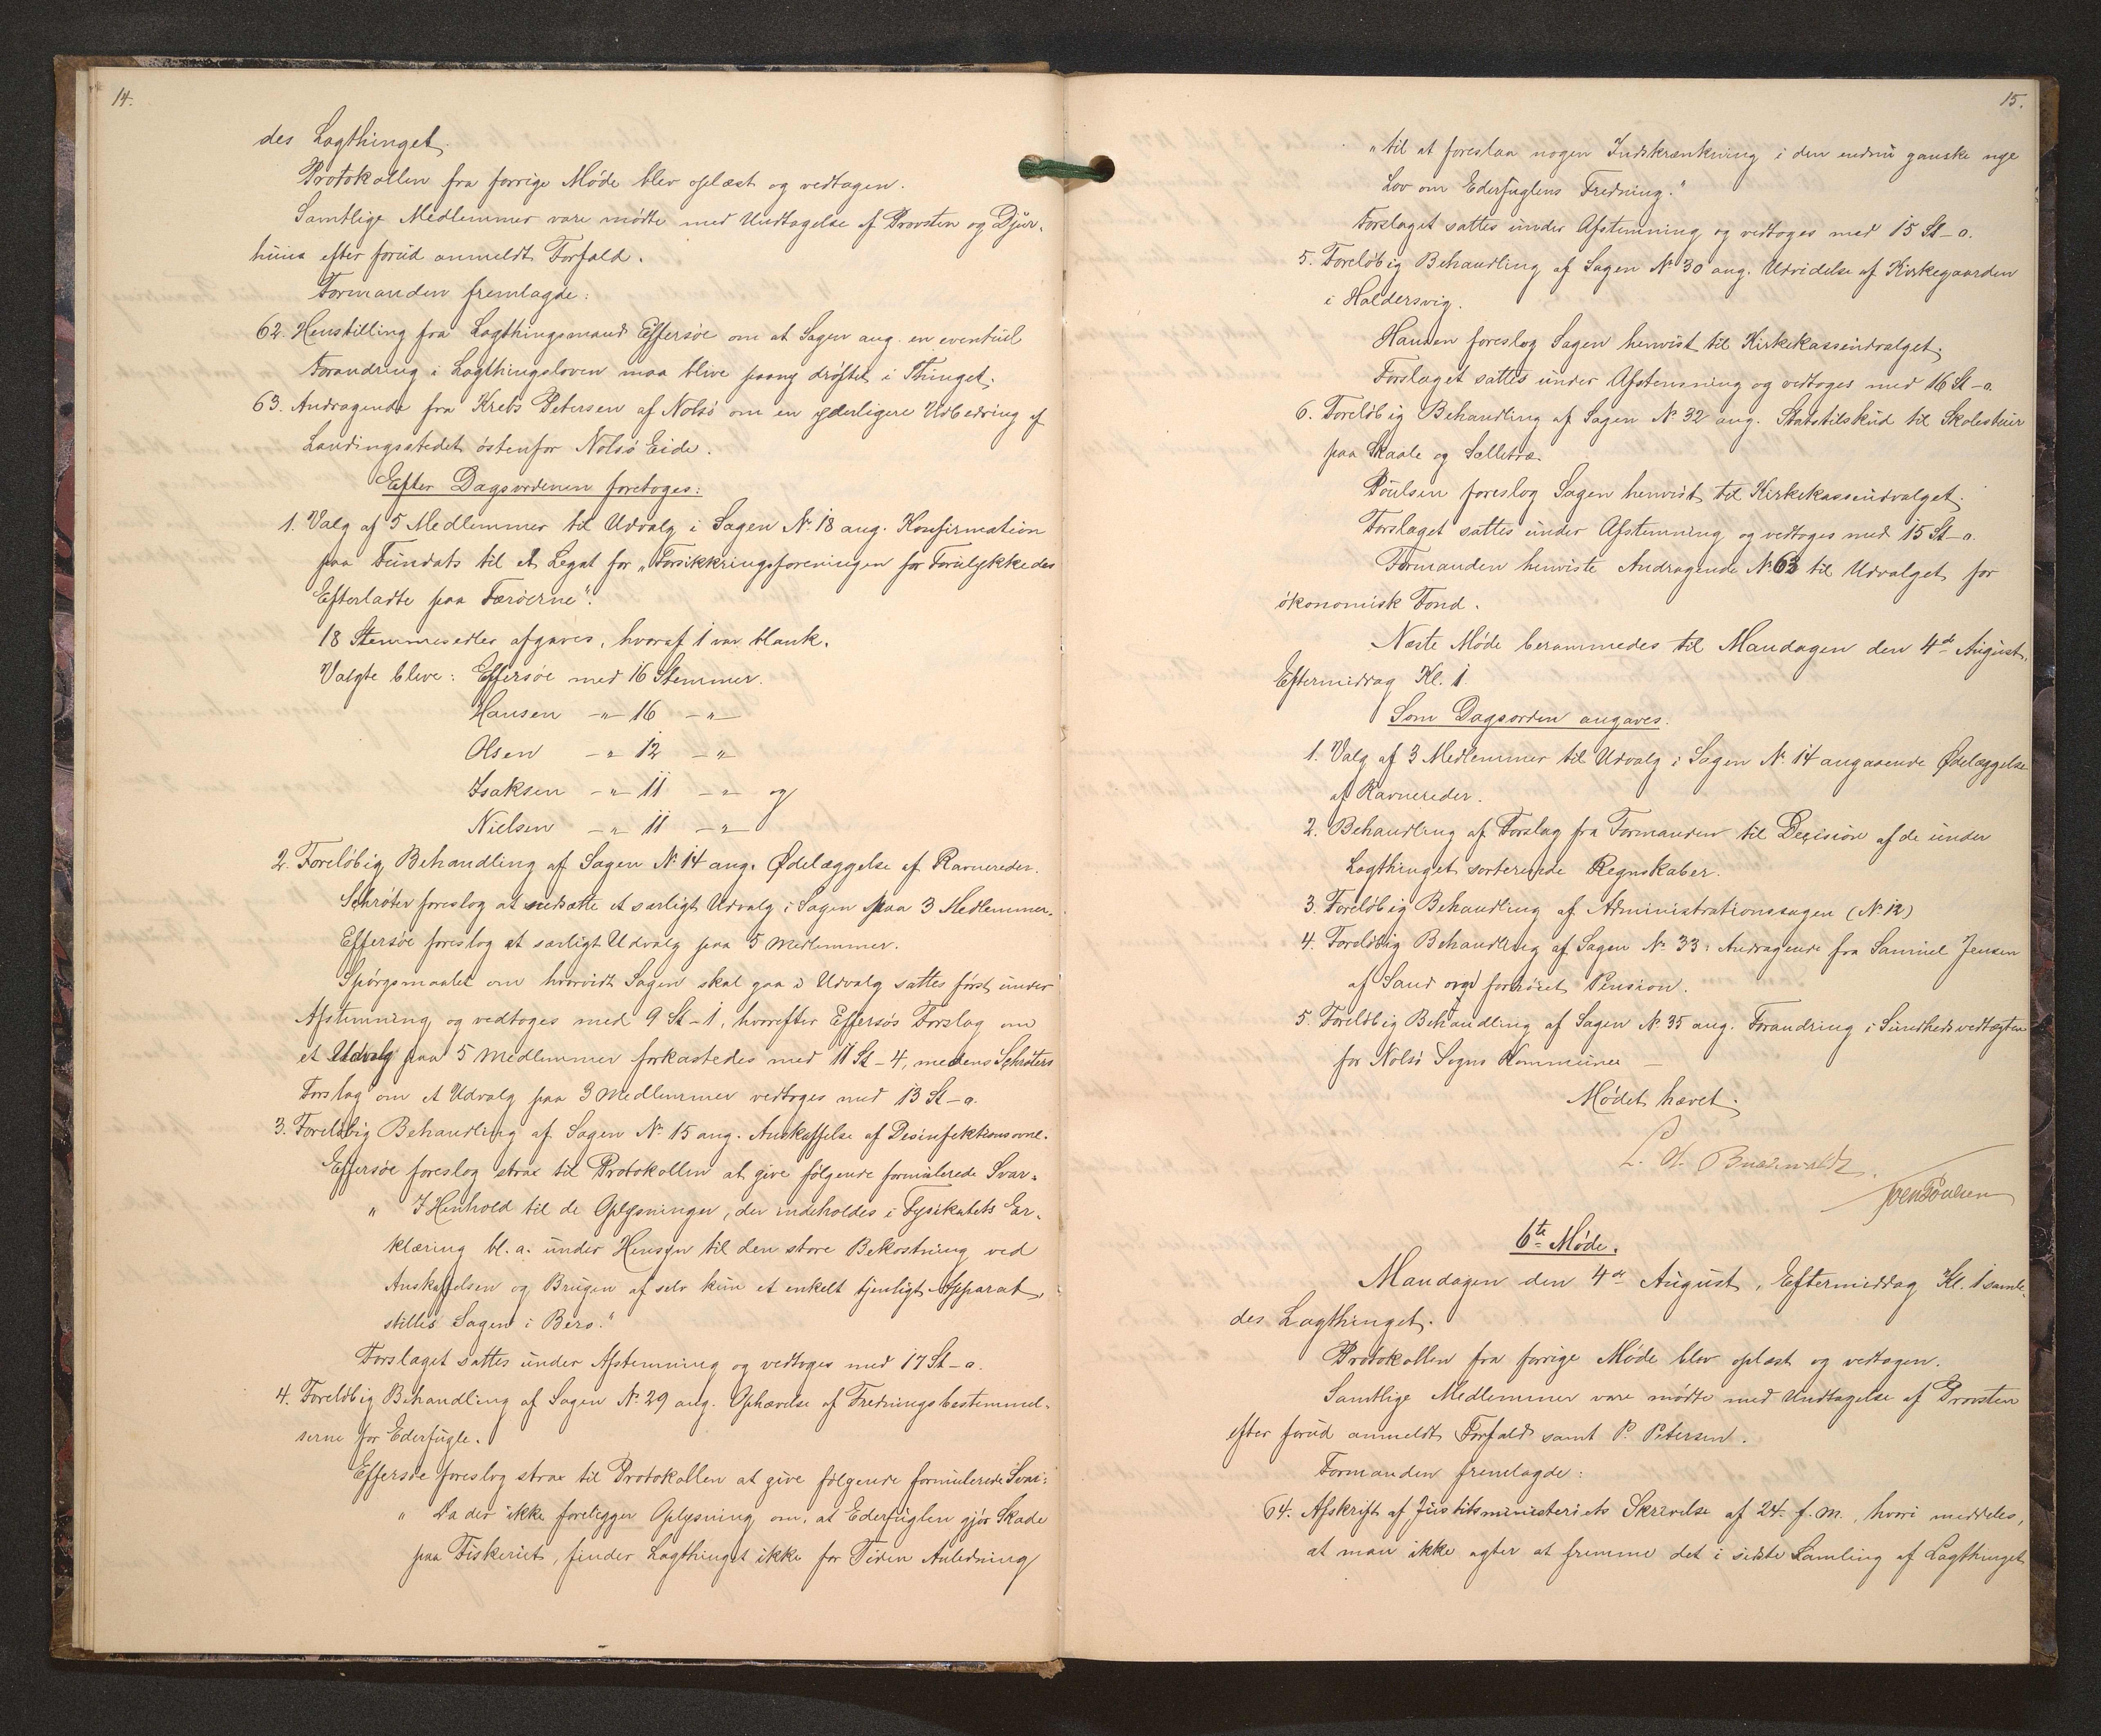 14.
des Lagthinget.
Protokollen fra forrige Møde blev oplæst og vedtagen.
Samtlige Medlemmer vare mødte med Undtagelse af Provsten og Djur-
huus efter forud anmeldt Forfald.
Formanden fremlagde:
62. Henstilling fra Lagthingsmand Effersøe om at Sagen ang. en eventuel
Forandring i Lagthingsloven maa blive paany drøftet i Thinget.
63. Andragende fra Krebs Petersen af Nolsø om en yderligere Udbedring af
Landingsstedet østenfor Nolsø Eide.
Efter Dagsordenen foretoges:
1. Valg af 5 Medlemmer til Udvalg i Sagen № 18 ang. Konfirmation
paa Fundats til et Legat for „Forsikkringsforeningen for Forulykkedes
Efterladte paa Færøerne“.
18 Stemmesedler afgaves, hvoraf 1 var blank.
Valgte bleve: Effersøe med 16 Stemmer.
Hansen –„– 16 –„–
Olsen –„– 12 –„–
Isaksen –„– 11 –„– og
Nielsen –„– 11 –„–
2. Foreløbig Behandling af Sagen № 14 ang. Ødelæggelse af Ravnereder.
Schrøter foreslog at nedsætte et særligt Udvalg i Sagen paa 3 Medlemmer.
Effersøe foreslog et særligt Udvalg paa 5 Medlemmer.
Spørgsmaalet om hvorvidt Sagen skal gaa i Udvalg sattes først under
Afstemning og vedtoges med 9 St–1, hvorefter Effersøs Forslag om
et Udvalg paa 5 Medlemmer forkastedes med 11 St–4, medens Schrøters
Forslag om et Udvalg paa 3 Medlemmer vedtoges med 13 St–0.
3. Foreløbig Behandling af Sagen № 15 ang. Anskaffelse af Desinfektionsovne.
Effersøe foreslog strax til Protokollen at give følgende formulerede Svar:
„I Henhold til de Oplysninger, der indeholdes i Fysikatets Er-
klæring bl. a. under Hensyn til den store Bekostning ved
Anskaffelsen og Brugen af selv kun et enkelt tjenligt Apparat,
stilles Sagen i Bero.“
Forslaget sattes under Afstemning og vedtoges med 17 St–0.
4. Foreløbig Behandling af Sagen № 29 ang. Ophævelse af Fredningsbestemmel-
serne for Ederfugle.
Effersøe foreslog strax til Protokollen at give følgende formulerede Svar:
„Da der ikke foreligger Oplysning om, at Ederfuglen gjør Skade
paa Fiskeriet, finder Lagthinget ikke for Tiden Anledning
15.
„til at foreslaa nogen Indskrænkning i den endnu ganske nye
Lov om Ederfuglens Fredning.“
Forslaget sattes under Afstemning og vedtoges med 15 St–0.
5. Foreløbig Behandling af Sagen № 30 ang. Udvidelse af Kirkegaarden
i Haldersvig.
Hansen foreslog Sagen henvist til Kirkekasseudvalget.
Forslaget sattes under Afstemning og vedtoges med 16 St–0.
6. Foreløbig Behandling af Sagen № 32 ang. Statstilskud til Skolestuer
paa Skaale og Selletræ.
Poulsen foreslog Sagen henvist til Kirkekasseudvalget.
Forslaget sattes under Afstemning og vedtoges med 15 St–0.
Formanden henviste Andragende № 63 til Udvalget for
økonomisk Fond.
Næste Møde berammedes til Mandagen den 4de August,
Eftermiddag Kl. 1.
Som Dagsorden angaves.
1. Valg af 3 Medlemmer til Udvalg i Sagen № 14 angaaende Ødelæggelse
af Ravnereder.
2. Behandling af Forslag fra Formanden til Decision af de under
Lagthinget sorterende Regnskaber.
3. Foreløbig Behandling af Administrationssagen (№ 12)
4. Foreløbig Behandling af Sagen № 33: Andragende fra Samuel Jensen
af Sand om forhøiet Pension.
5. Foreløbig Behandling af Sagen № 35 ang. Forandring i Sundhedsvedtægten
for Nolsø Sogns Kommune
Mødet hævet.
6te Møde.
Mandagen den 4de August, Eftermiddag Kl. 1 samle-
des Lagthinget.
Protokollen fra forrige Møde blev oplæst og vedtagen.
Samtlige Medlemmer vare mødte med Undtagelse af Provsten
efter forud anmeldt Forfald samt P. Petersen.
Formanden fremlagde:
64. Afskrift af Justitsministeriets Skrivelse af 24. f. M., hvori meddeles,
at man ikke agter at fremme det i sidste Samling af Lagthinget